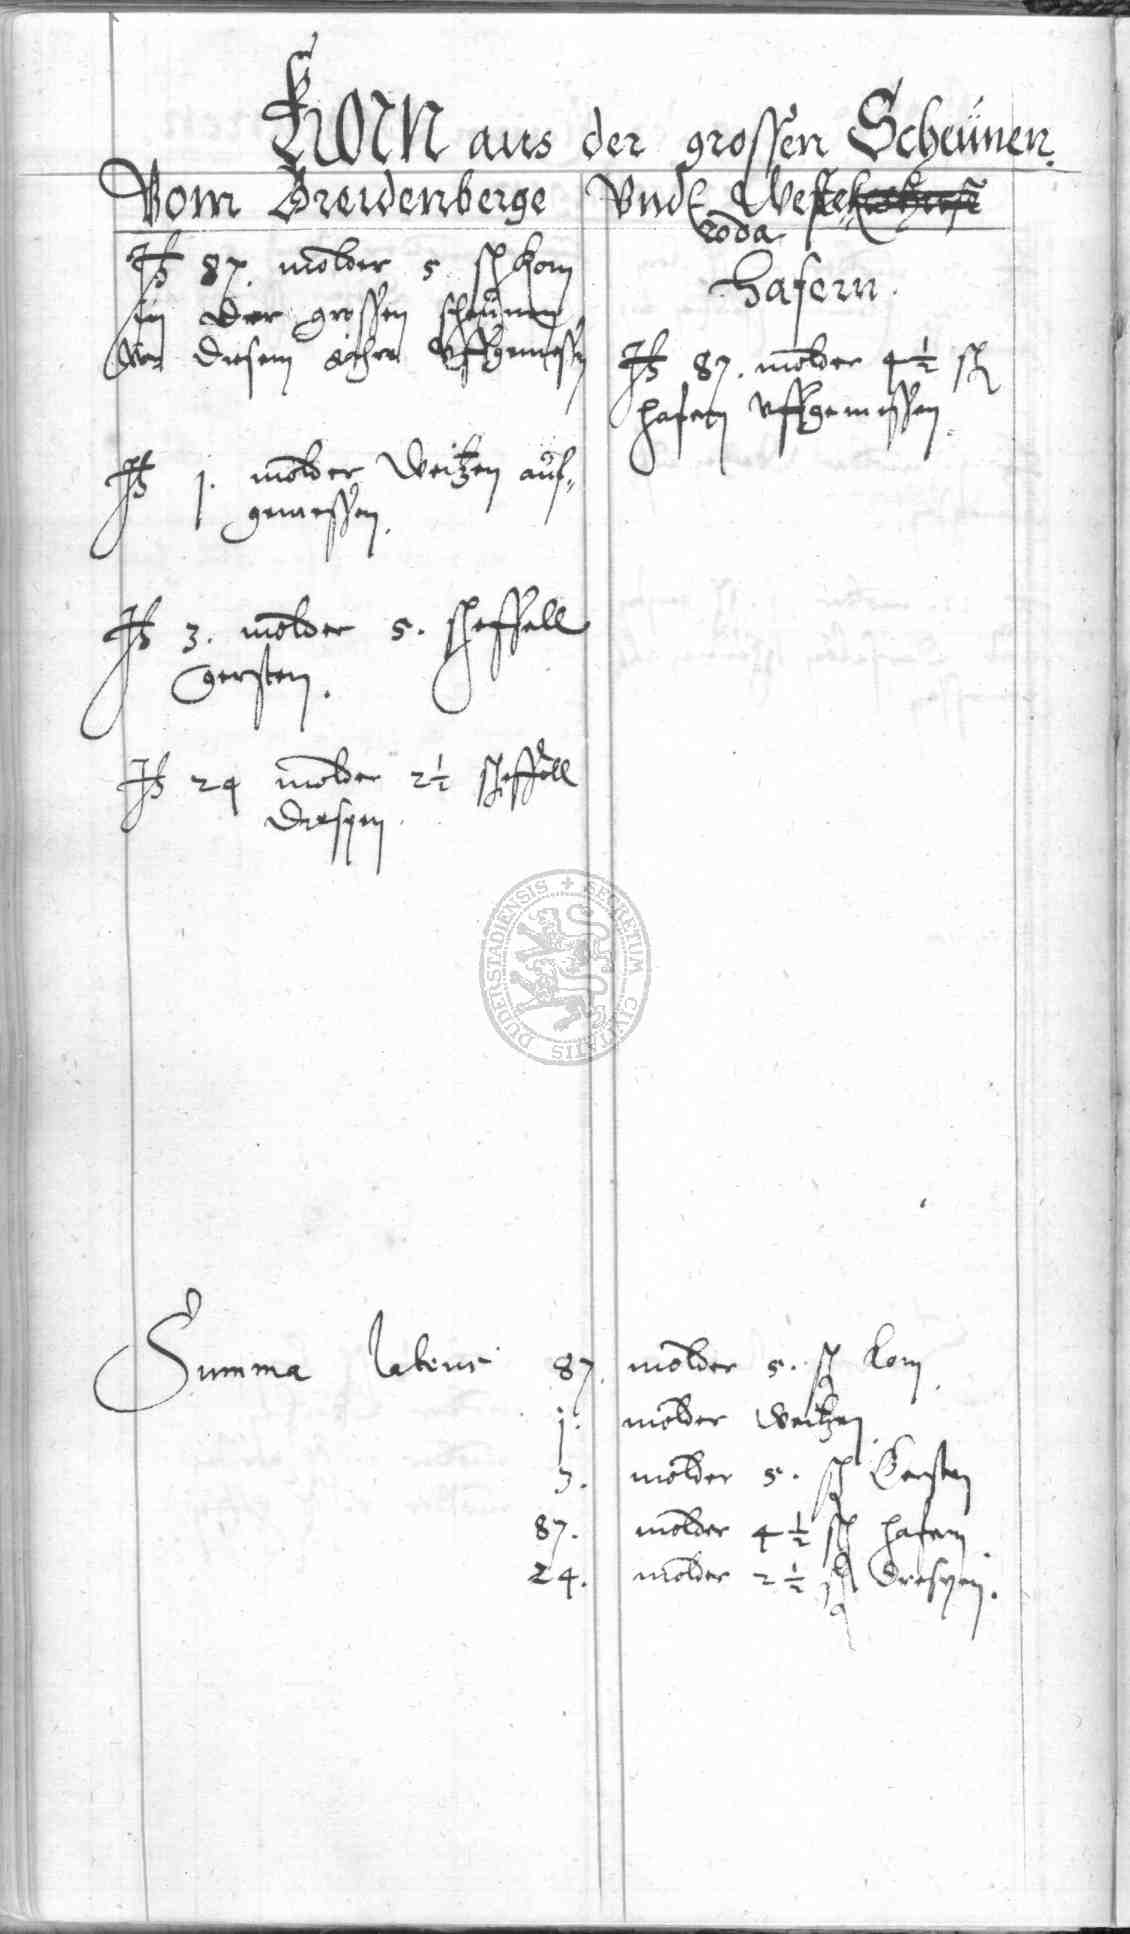 Korn aus der grossen Scheünen.
Vom Breidenberge Vnd Weste
roda
It 87. molder 5 sch Korn
in der grossen scheunen
von diesem Jahre vffgemessen
It 1. molder Weitzen auf-
gemessen.
It 3. molder 5. scheffell
gersten.
It 24 molder 2½ scheffell
Drespen.
Hafern.
It 87. molder 4½ sch
hafern vffgemessen.
SECRETUM CIVITATIS DUDERSTADIENSIS
Summa lateris 87. molder 5. sch Korn.
1. molder Weitzen.
3. molder 5. sch Gersten
87. molder 4½ sch hafern.
24. molder 2½ sch Drespen.